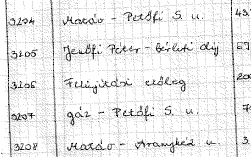 3204 Matáv - Petőfi S. u. 43
3205 Jenőfi Péter - bérleti díj 67
3206 Felújítási előleg 200
3207 gáz - Petőfi S. u. 7
3208 Matáv - Aranykéz u. 3